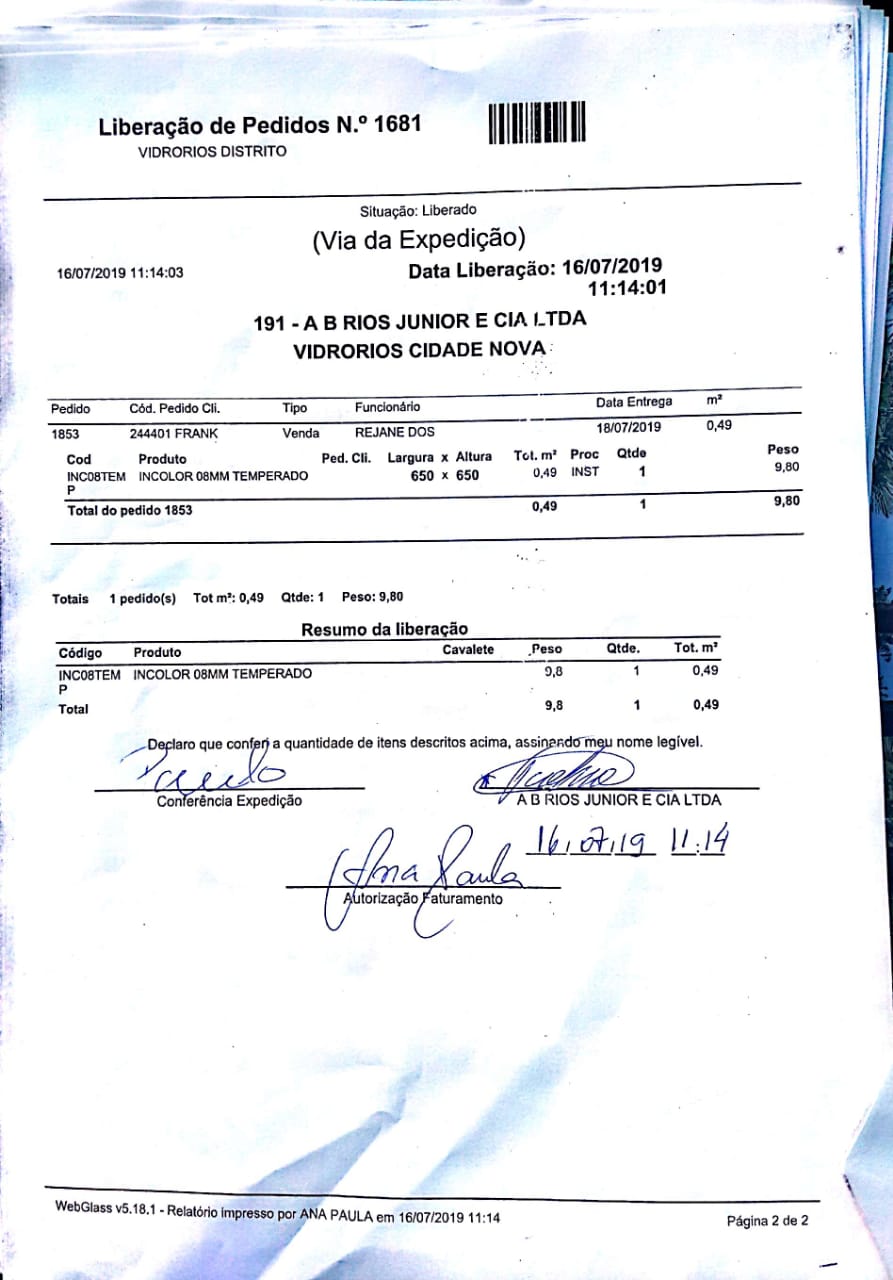 Liberação de Pedidos N.º 1681
VIDRORIOS DISTRITO
Situação: Liberado
(Via da Expedição)
16/07/2019 11:14:03
Data Liberação: 16/07/2019
11:14:01
191 - A B RIOS JUNIOR E CIA LTDA
VIDRORIOS CIDADE NOVA
Pedido Cód. Pedido Cli. Tipo Funcionário Data Entrega m²
1853 244401 FRANK Venda REJANE DOS 18/07/2019 0,49
Cod Produto Ped. Cli. Largura x Altura Tot. m² Proc Qtde Peso
INC08TEM INCOLOR 08MM TEMPERADO 650 x 650 0,49 INST 1 9,80
P
Total do pedido 1853 0,49 1 9,80
Totais 1 pedido(s) Tot m²: 0,49 Qtde: 1 Peso: 9,80
Resumo da liberação
Código Produto Cavalete Peso Qtde. Tot. m²
INC08TEM INCOLOR 08MM TEMPERADO 9,8 1 0,49
P
Total 9,8 1 0,49
Declaro que conferi a quantidade de itens descritos acima, assinando meu nome legível.
Conferência Expedição A B RIOS JUNIOR E CIA LTDA
16,07,19 11:14
Ana Paula
Autorização Faturamento
WebGlass v5.18.1 - Relatório impresso por ANA PAULA em 16/07/2019 11:14
Página 2 de 2